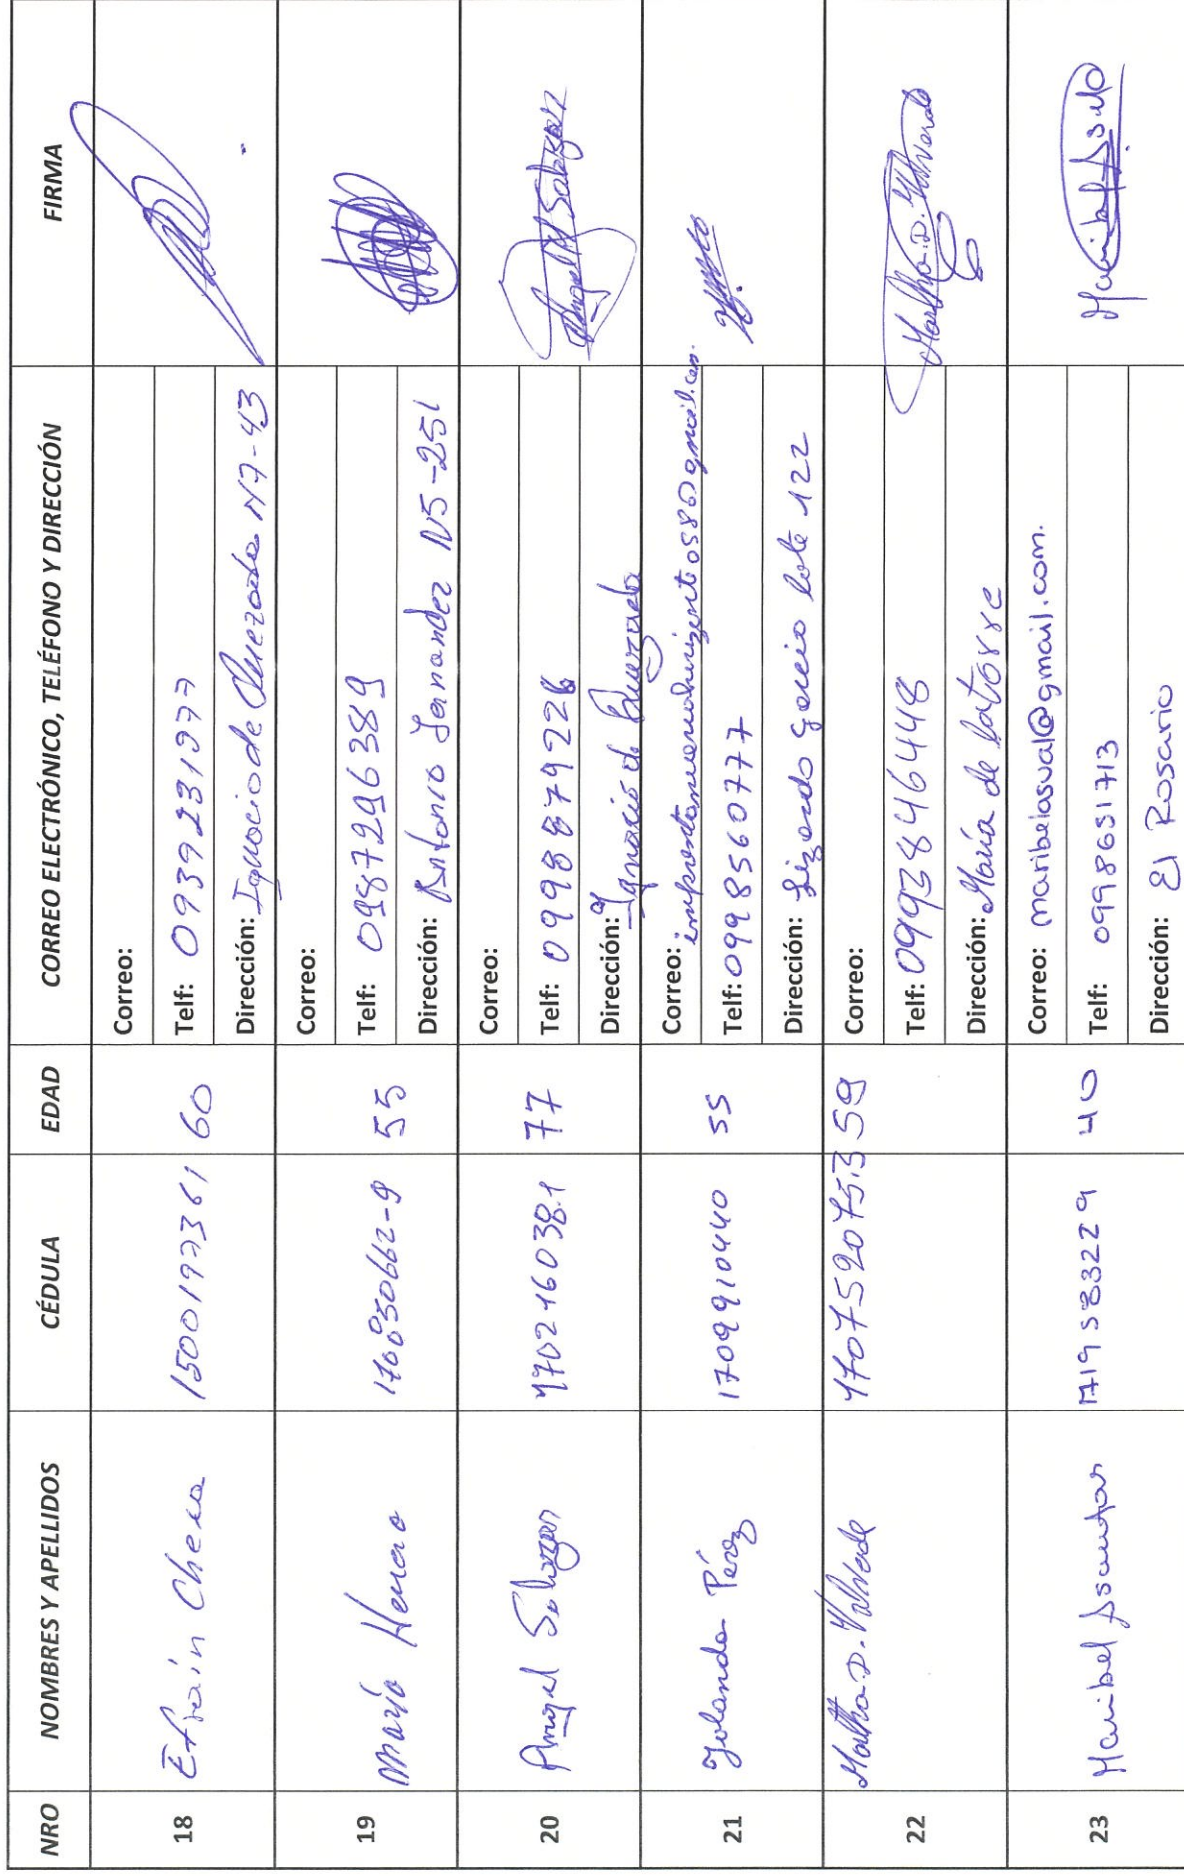 NRO NOMBRES Y APELLIDOS CÉDULA EDAD CORREO ELECTRÓNICO, TELÉFONO Y DIRECCIÓN FIRMA
18 Efraín Chera 1500197361 60
Correo:
Telf: 0939231977
Dirección: Ignacio de Quezada N7-43
19 Mario Herrera 55
Correo:
Telf: 0987296389
Dirección: Antonio Fernandez N5-251
20 Angel Salazar 170216038-1 77
Correo:
Telf: 0998879226
Dirección: Ignacio de Quezada
Angel M Salazar
21 Yolanda Pérez 1709910440 55
Correo:
Telf: 0998560777
Dirección: Lizardo García lote 122
22 Martha D. Valverde 1707592075 59
Correo:
Telf: 0993846448
Dirección: María de Latorre
Martha D. Valverde
23 Maribel 1719583229 40
Correo: maribelasval@gmail.com.
Telf: 0998651713
Dirección: El Rosario
Maribel